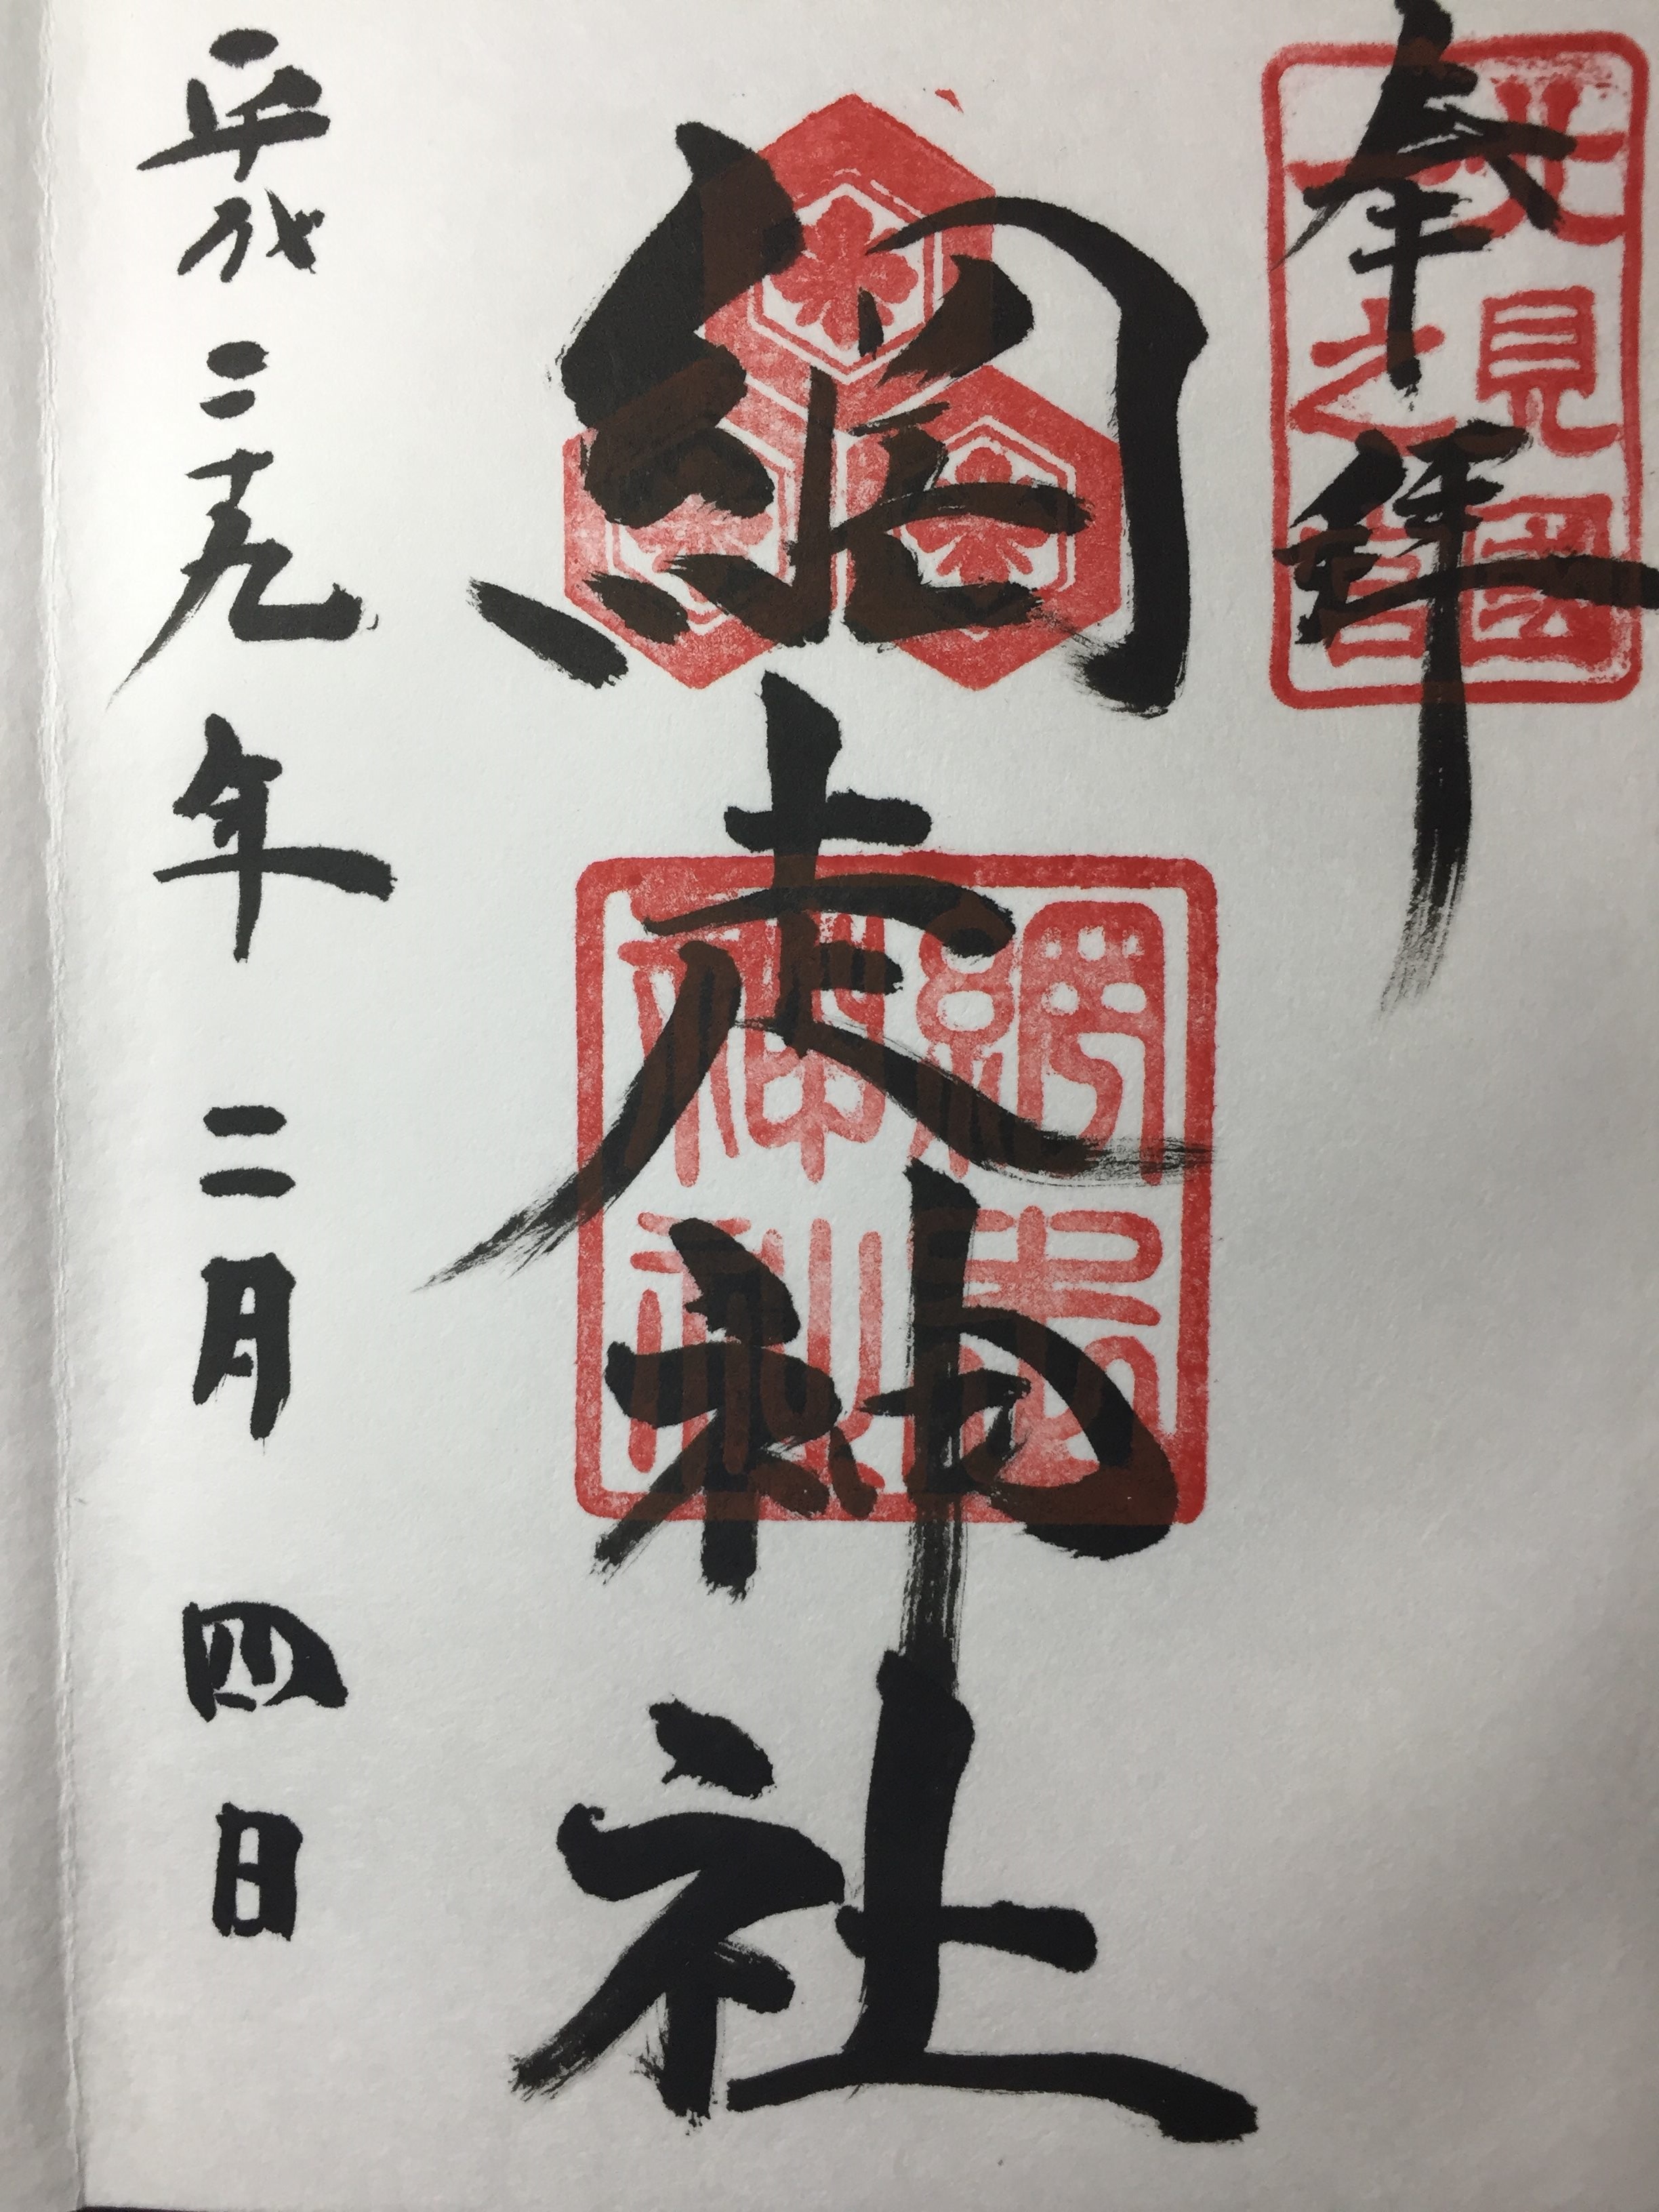 奉拝
北見國
一之宮
網走神社
網走
神社
平成二十九年二月四日